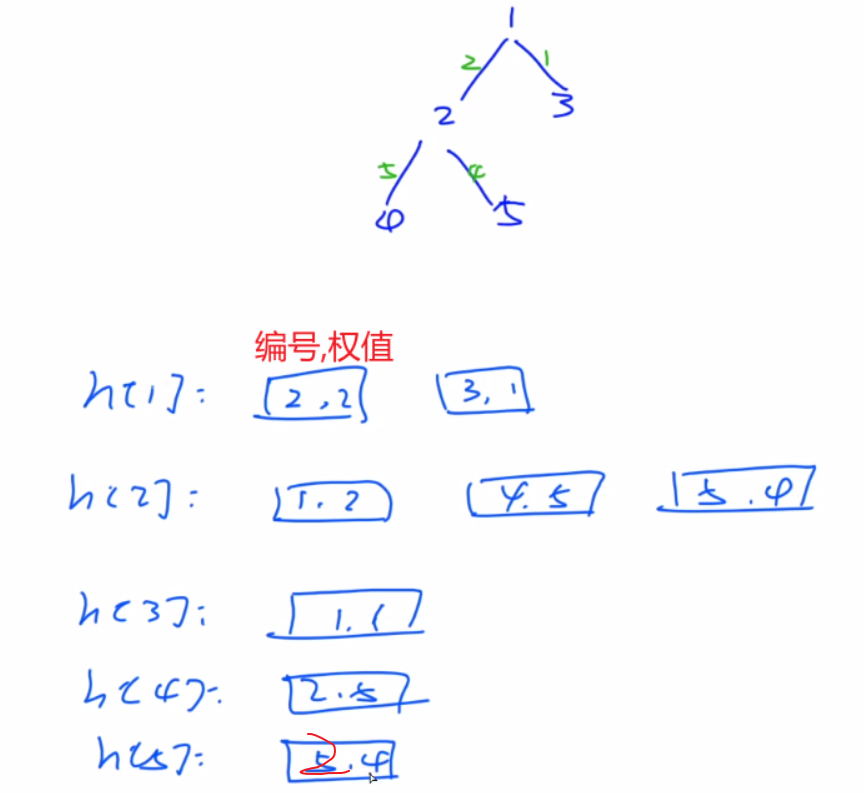 1
2 1
2 3
5 4
4 5
编号,权值
h[1]: 2,2 3,1
h[2]: 1.2 4.5 5.4
h[3]: 1.1
h[4]: 2.5
h[5]: 2.4